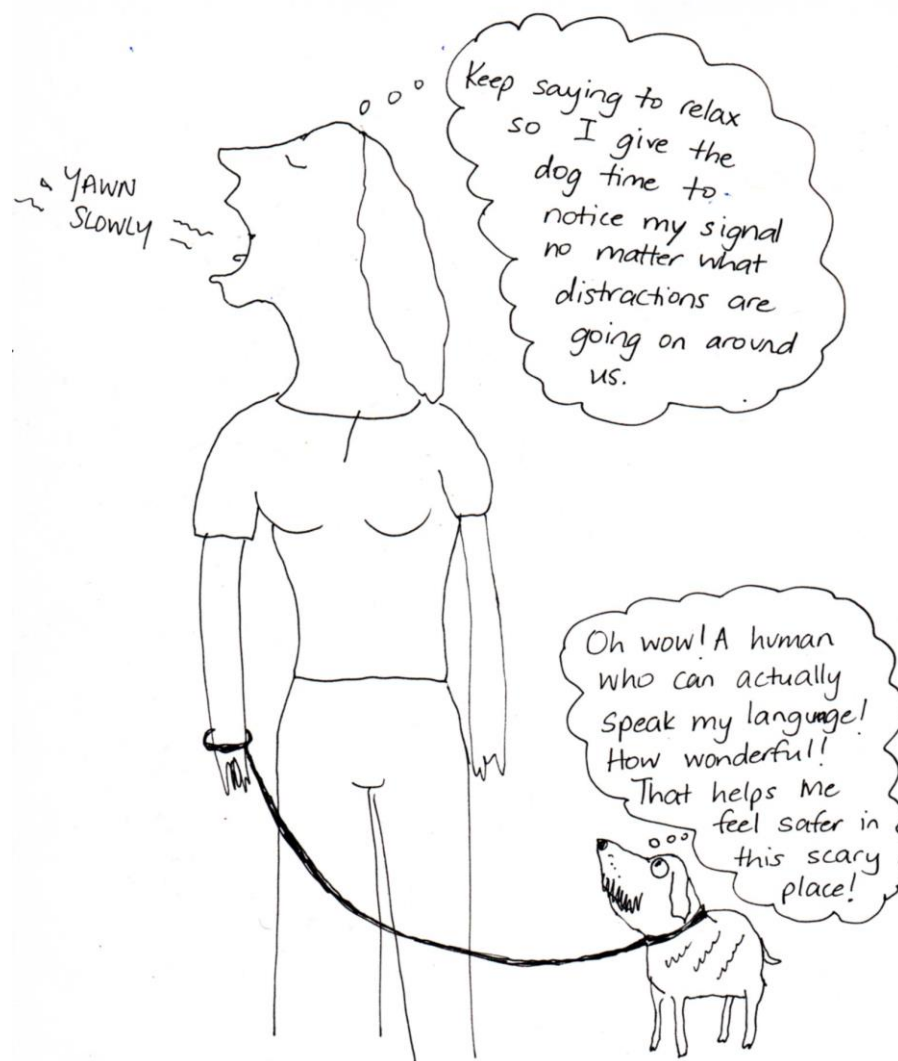 YAWN
SLOWLY
Keep saying to relax
so I give the
dog time to
notice my signal
no matter what
distractions are
going on around
us.
Oh wow! A human
who can actually
speak my language!
How wonderful!
That helps me
feel safer in
this scary
place!